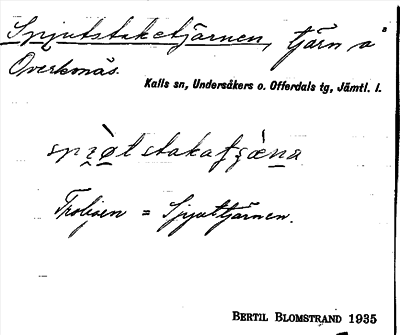 Spjutstaketjärnen, tjärn å
Överkonäs.
Kalls sn, Undersåkers o. Offerdals tg, Jämtl. l.
Troligen = Spjuttjärnen.
BERTIL BLOMSTRAND 1935